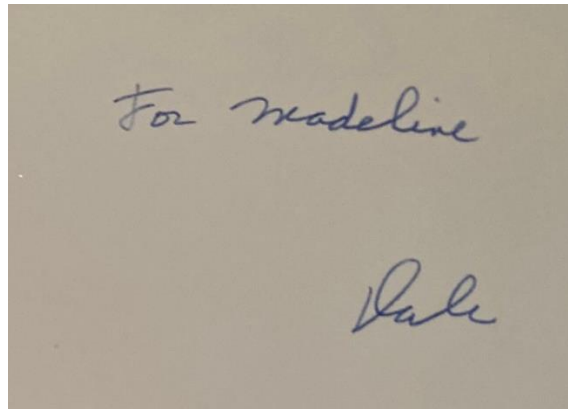 For Madeline
Dale